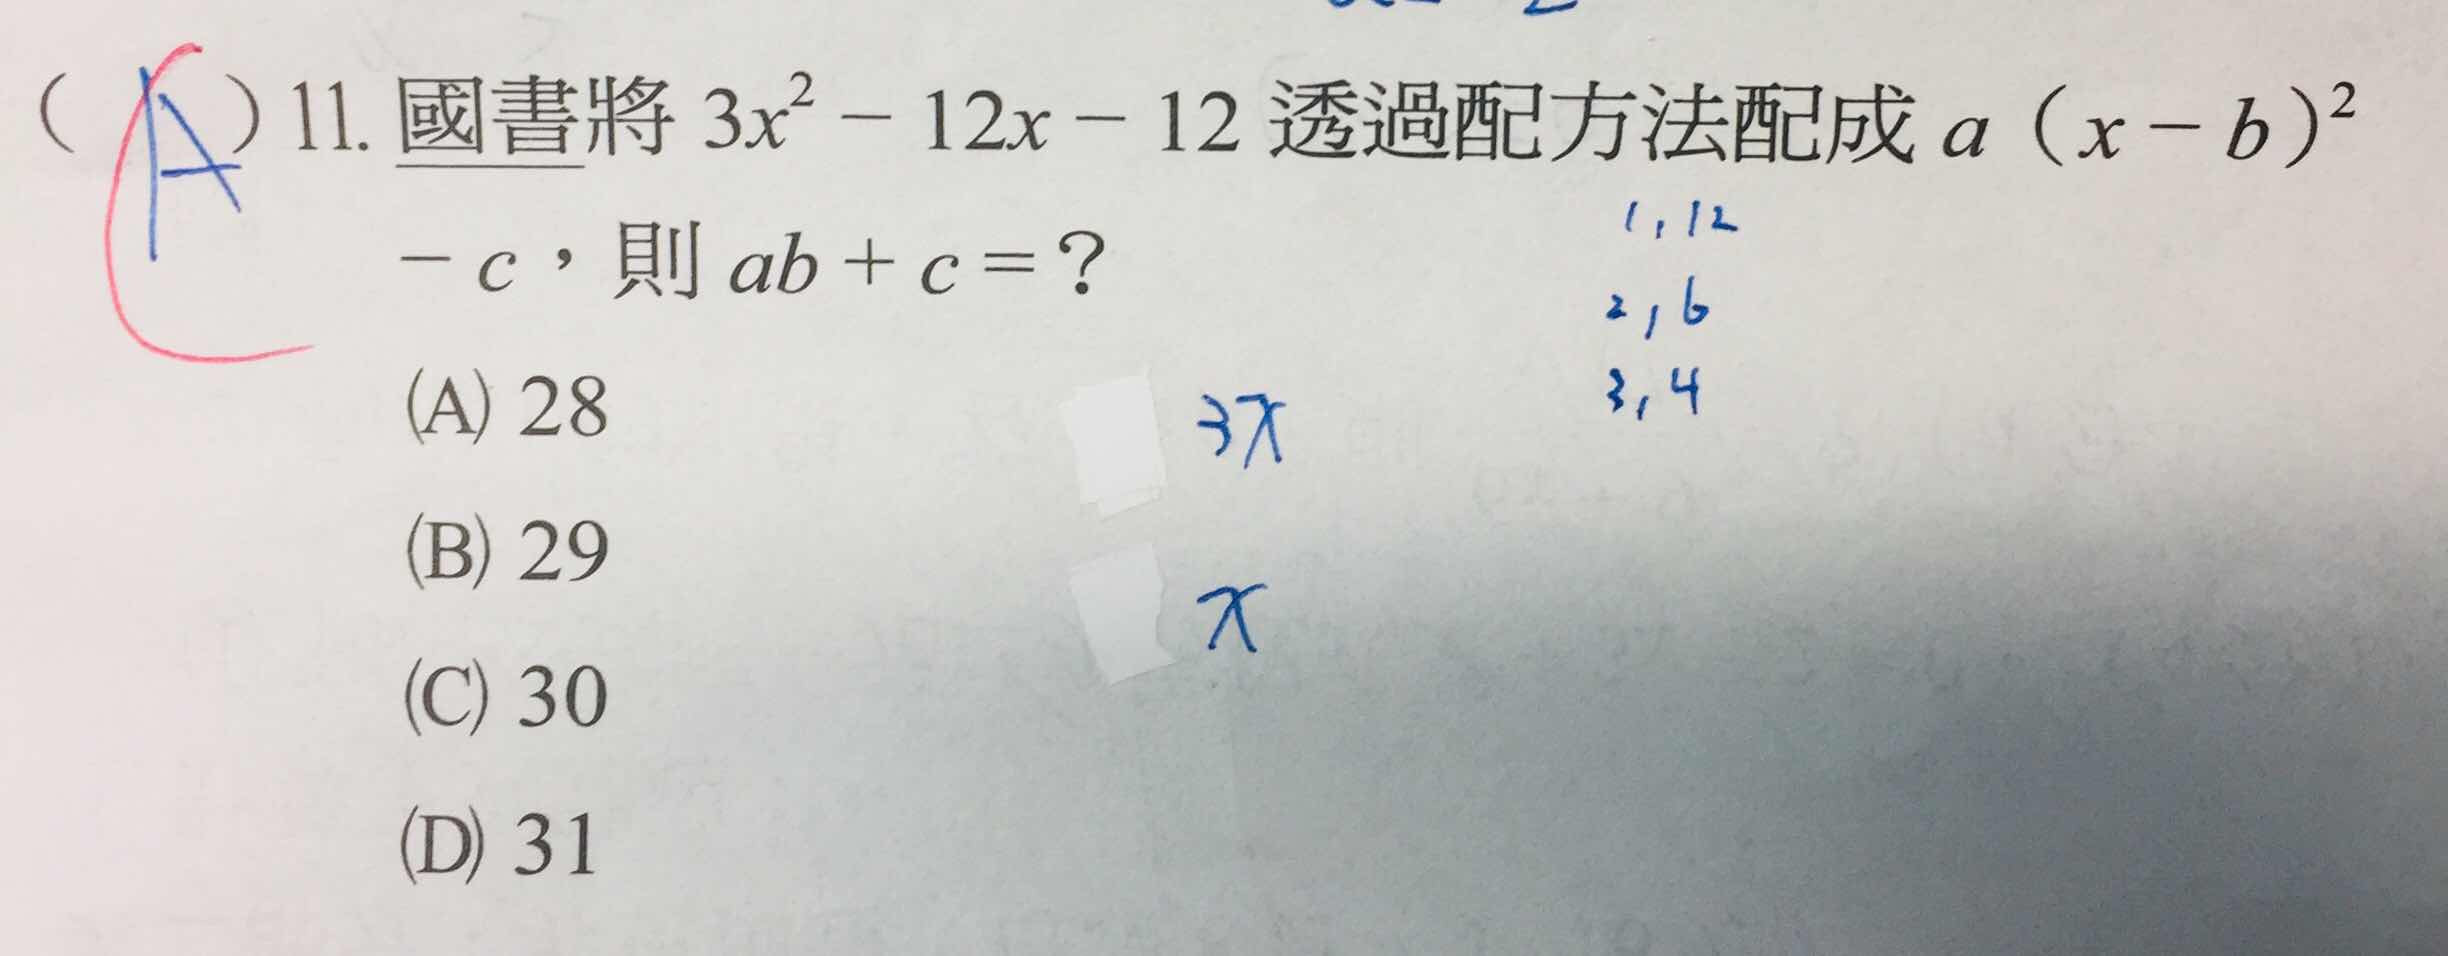 ( A ) 11. 國書將 3x² − 12x − 12 透過配方法配成 a（x − b）²
− c，則 ab + c = ？
1, 12
2, 6
3, 4
(A) 28
3x
(B) 29
x
(C) 30
(D) 31